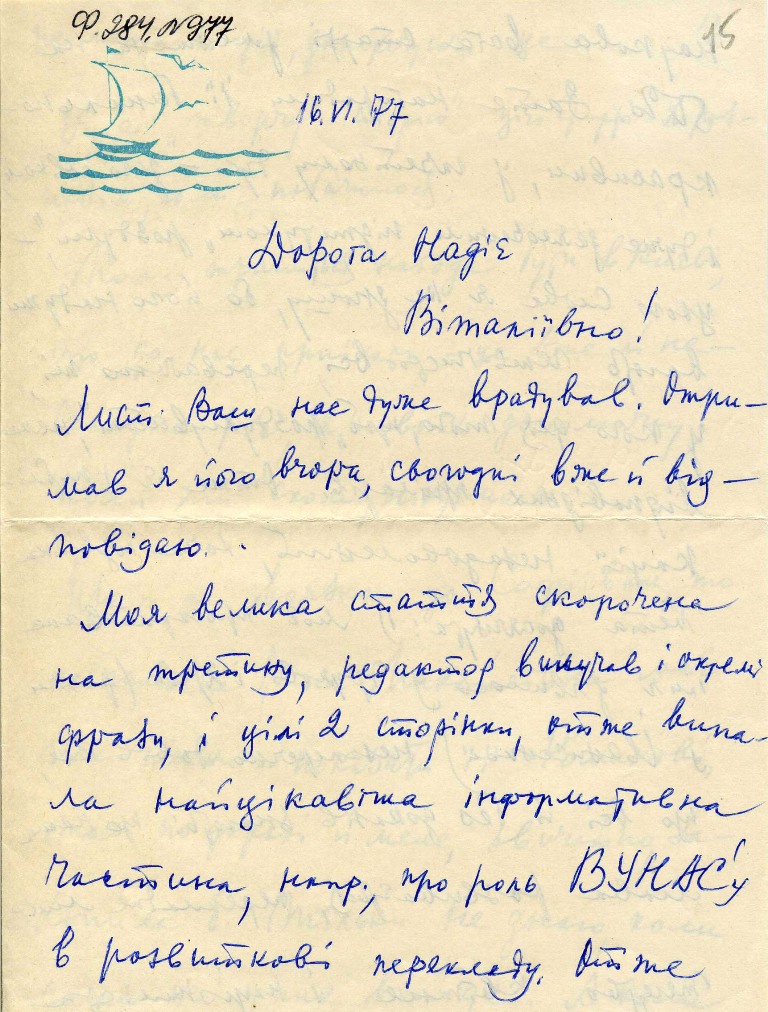 Ф. 284, №977
15
16.VI.77
Дорога Надіє
Віталіївно!
Лист Ваш нас дуже врадував. Отри-
мав я його вчора, сьогодні вже й від-
повідаю.
Моя велика стаття скорочена
на третину, редактор вилучав і окремі
фрази, і цілі 2 сторінки, отже випа-
ла найцікавіша інформативна
частина, напр., про роль ВУНАС'у
в розвиткові перекладу. Отже